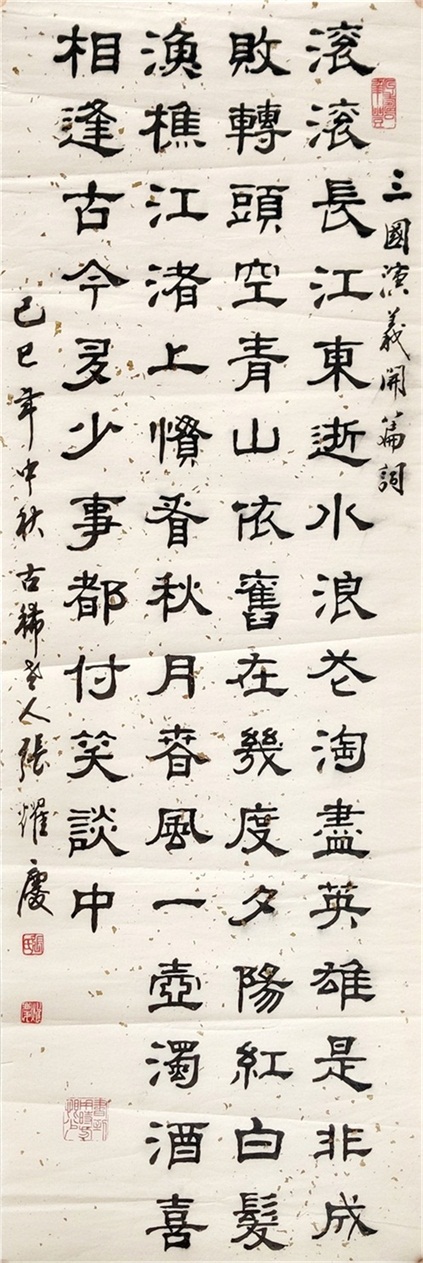 三國演義開篇詞
滚滚長江東逝水浪花淘盡英雄是非成
敗轉頭空青山依舊在幾度夕陽紅白髮
漁樵江渚上慣看秋月春風一壺濁酒喜
相逢古今多少事都付笑談中
己巳年中秋古稀老人張耀慶